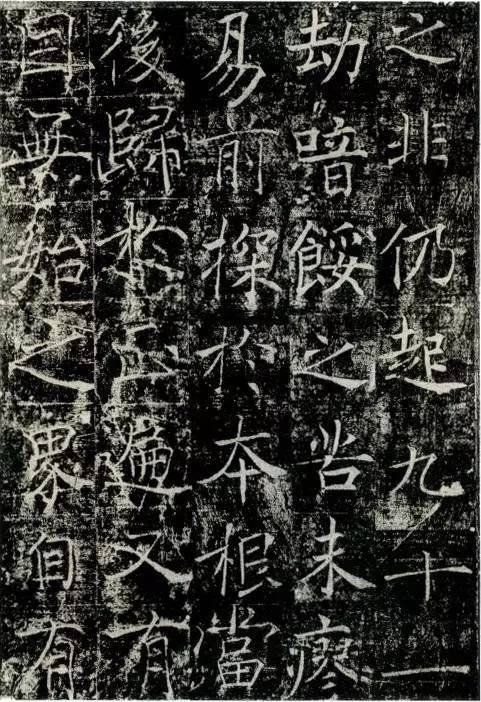 之非仍起九十一
劫暗餒之苦未瘳
易前探於本根當
後歸於正遍又有
自無始之界自有